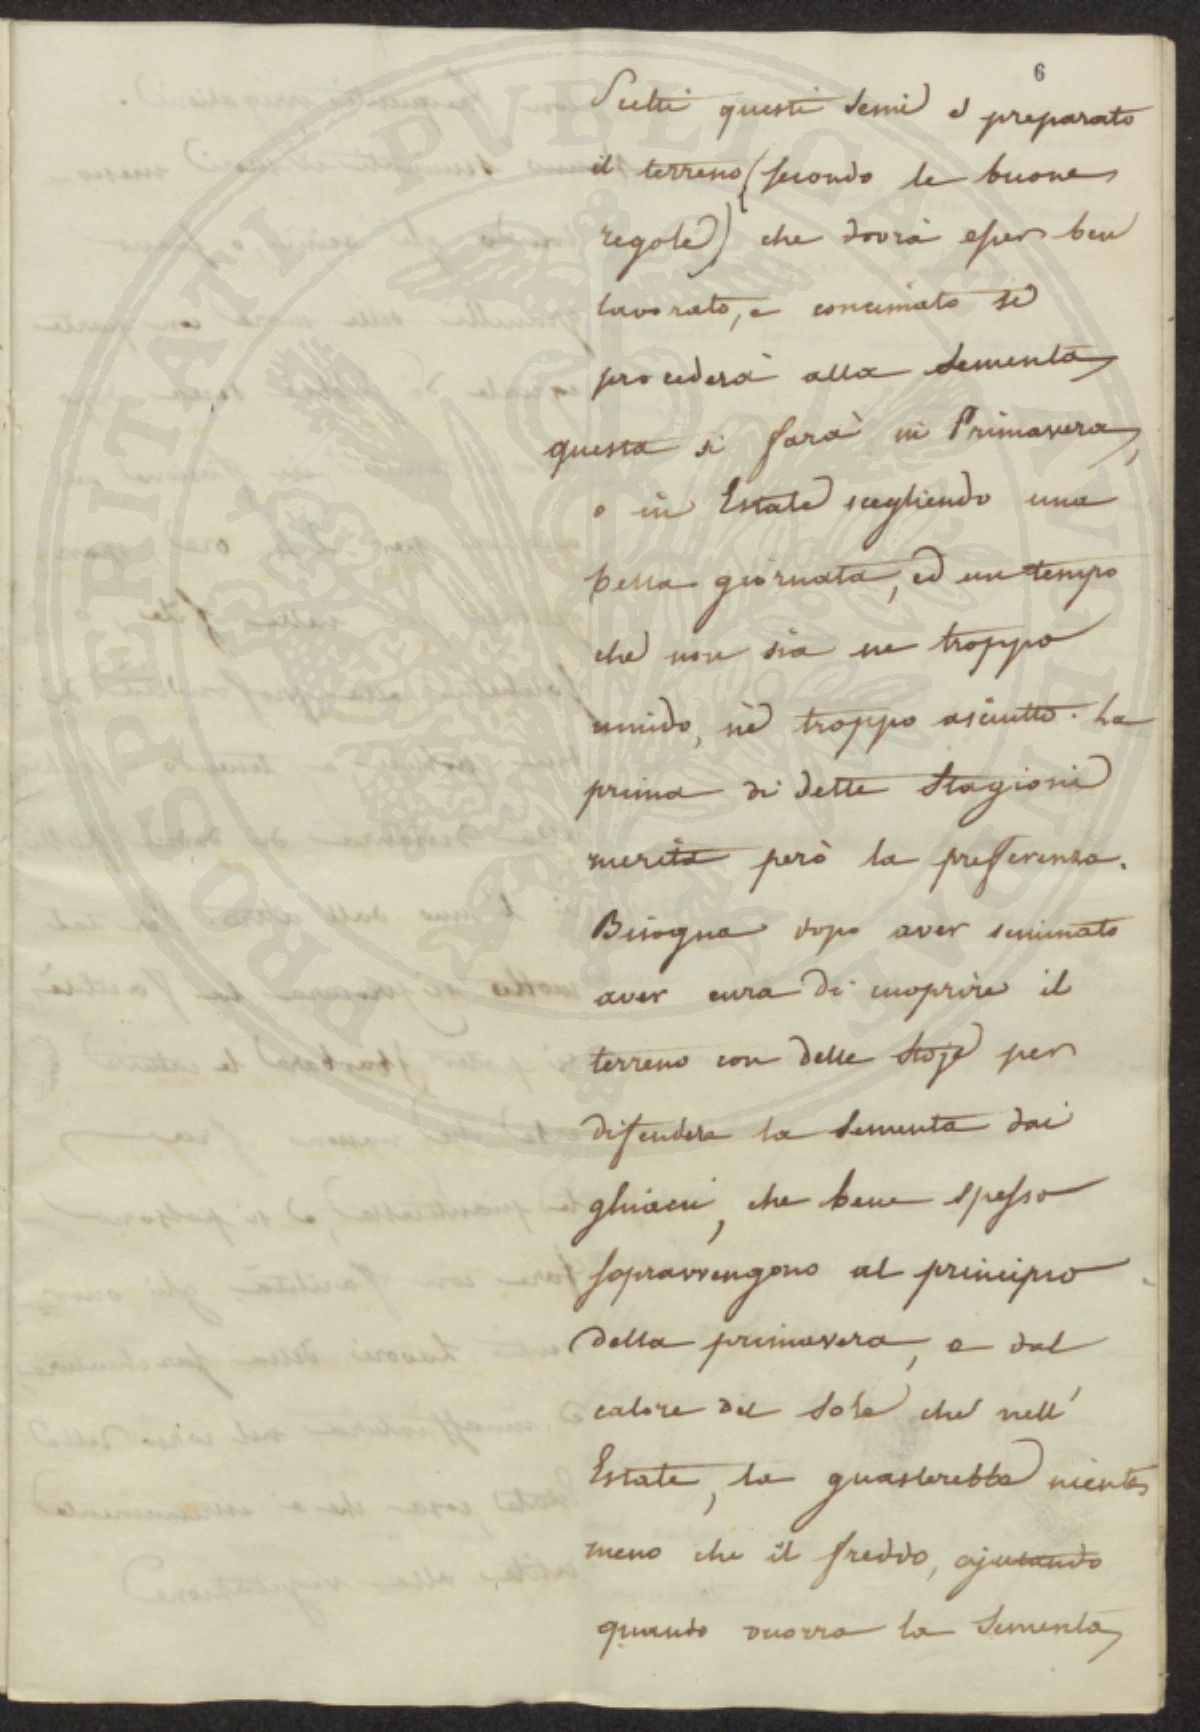 6
Scelti questi semi e preparato
il terreno (secondo le buone
regole) che dovrà esser ben
lavorato, e concimato si
procederà alla sementa
questa si farà in Primavera,
o in Estate scegliendo una
bella giornata, ed un tempo
che non sia ne troppo
umido, nè troppo asciutto. La
prima di dette Stagioni
merita però la preferenza.
Bisogna dopo aver seminato
aver cura di cuoprire il
terreno con delle Stoje per
difendere la Sementa dai
ghiacci, che bene spesso
sopravvengono al principio
della primavera, e dal
calore del Sole che nell'
Estate, la guasterebbe niente
meno che il freddo, ajutando
quando occorra la Sementa
PROSPERITATI PVBLICAE AVGENDAE